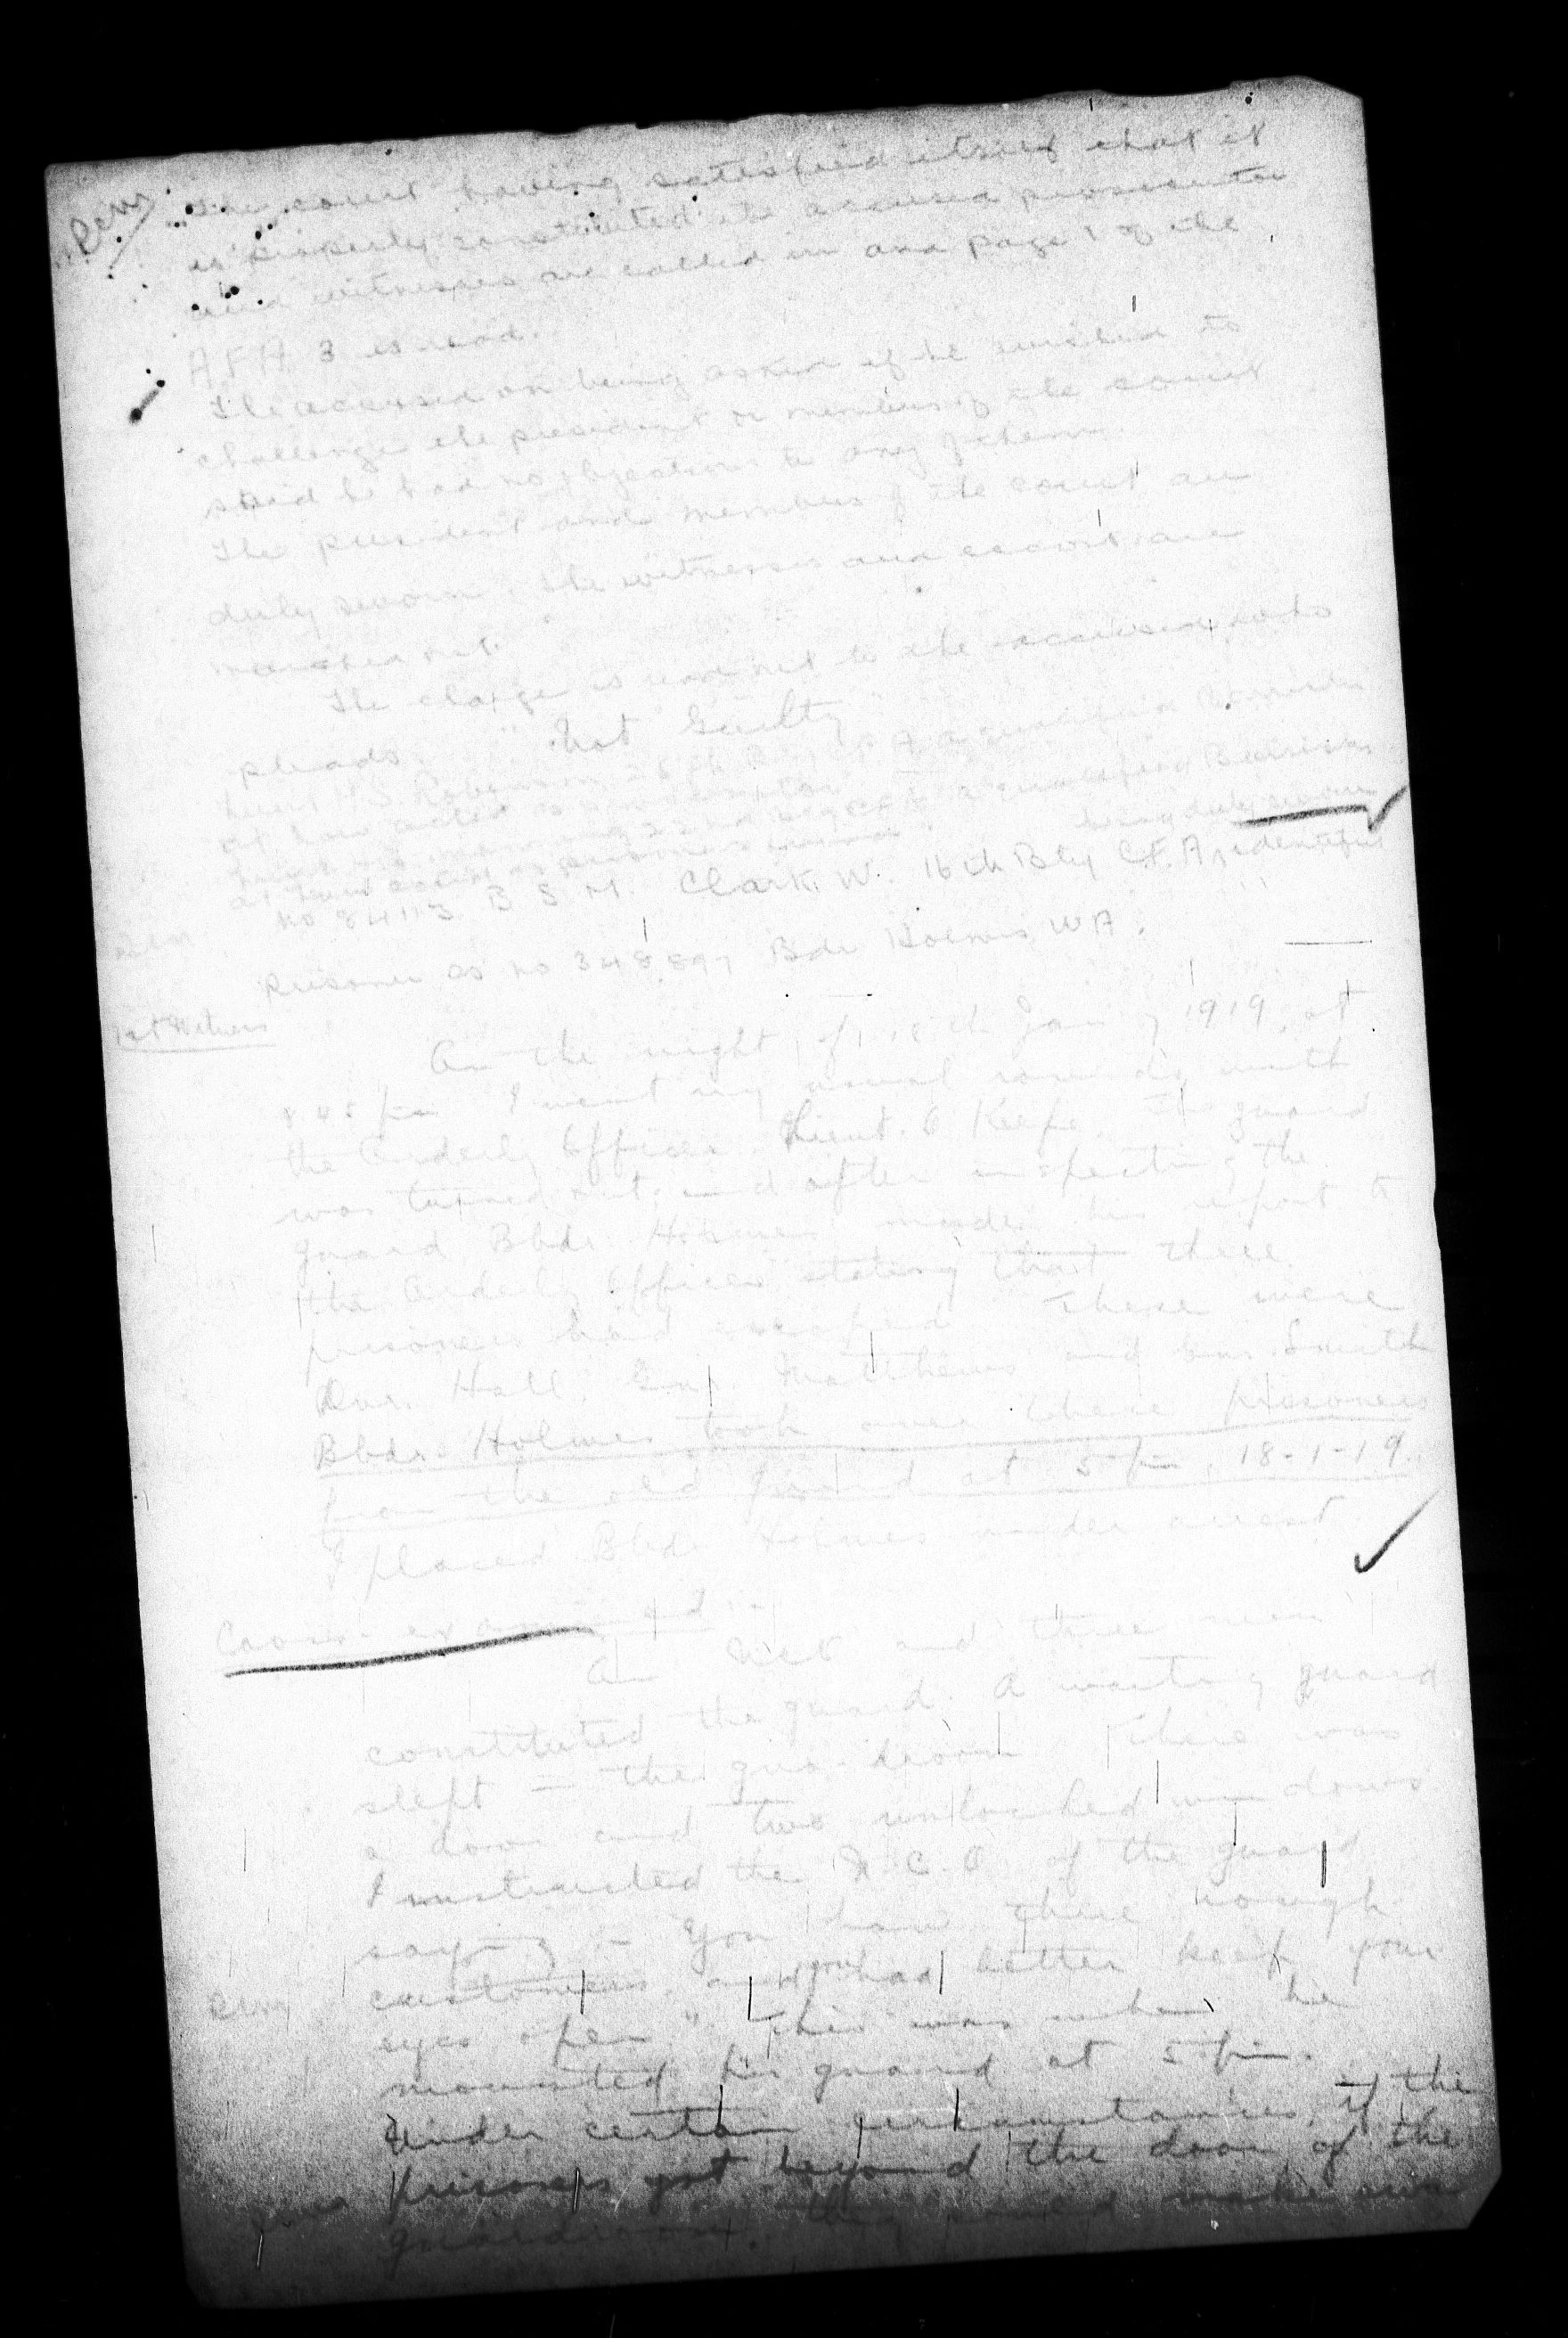 The court having satisfied itself that it
is properly constituted the accused prosecutor
and witnesses are called in and page 1 of the
A F A 3 is read.
The accused on being asked if he wished to
challenge the president or members of the court
said he had no objections to any of them.
The president and members of the court are
duly sworn. the witnesses and escort are
marched out.
The charge is read out to the accused who
pleads. "Not Guilty"
Lieut H.S. Robinson 6th Bty C.F.A. a qualified Barrister
at law acted as prosecutor
a qualified Barrister
at law acted as prisoners friend. being duly sworn
No 84113 B S M. Clark. W. 16th Bty C.F.A, identifies
Prisoner as no 348897 Bdr Holmes WA.
1st Witness
On the night of 18th Jany 1919, at
8 45 pm I went my usual rounds with
the Orderly Officer Lieut. O'Keefe. The guard
was turned out, and after inspecting the
guard Bbdr. Holmes made his report to
the Orderly Officer stating that three
prisoners had escaped. These were
Dvr. Hall, Gnr. Matthews and Gnr. Smith
Bbdr. Holmes took over these prisoners
from the old guard at 5 pm, 18-1-19.
I placed Bbd Holmes under arrest.
Cross-examined:-
An NCO and three men
constituted the guard. A waiting guard
slept in the gun-room. There was
a door and two unlocked windows.
I instructed the N.C.O. of the guard
saying:- "You have three tough
customers and you had better keep your
eyes open". This was when he
mounted his guard at 5 pm.
Under certain circumstances, if the
prisoners got beyond the door of the
guardroom, they could make